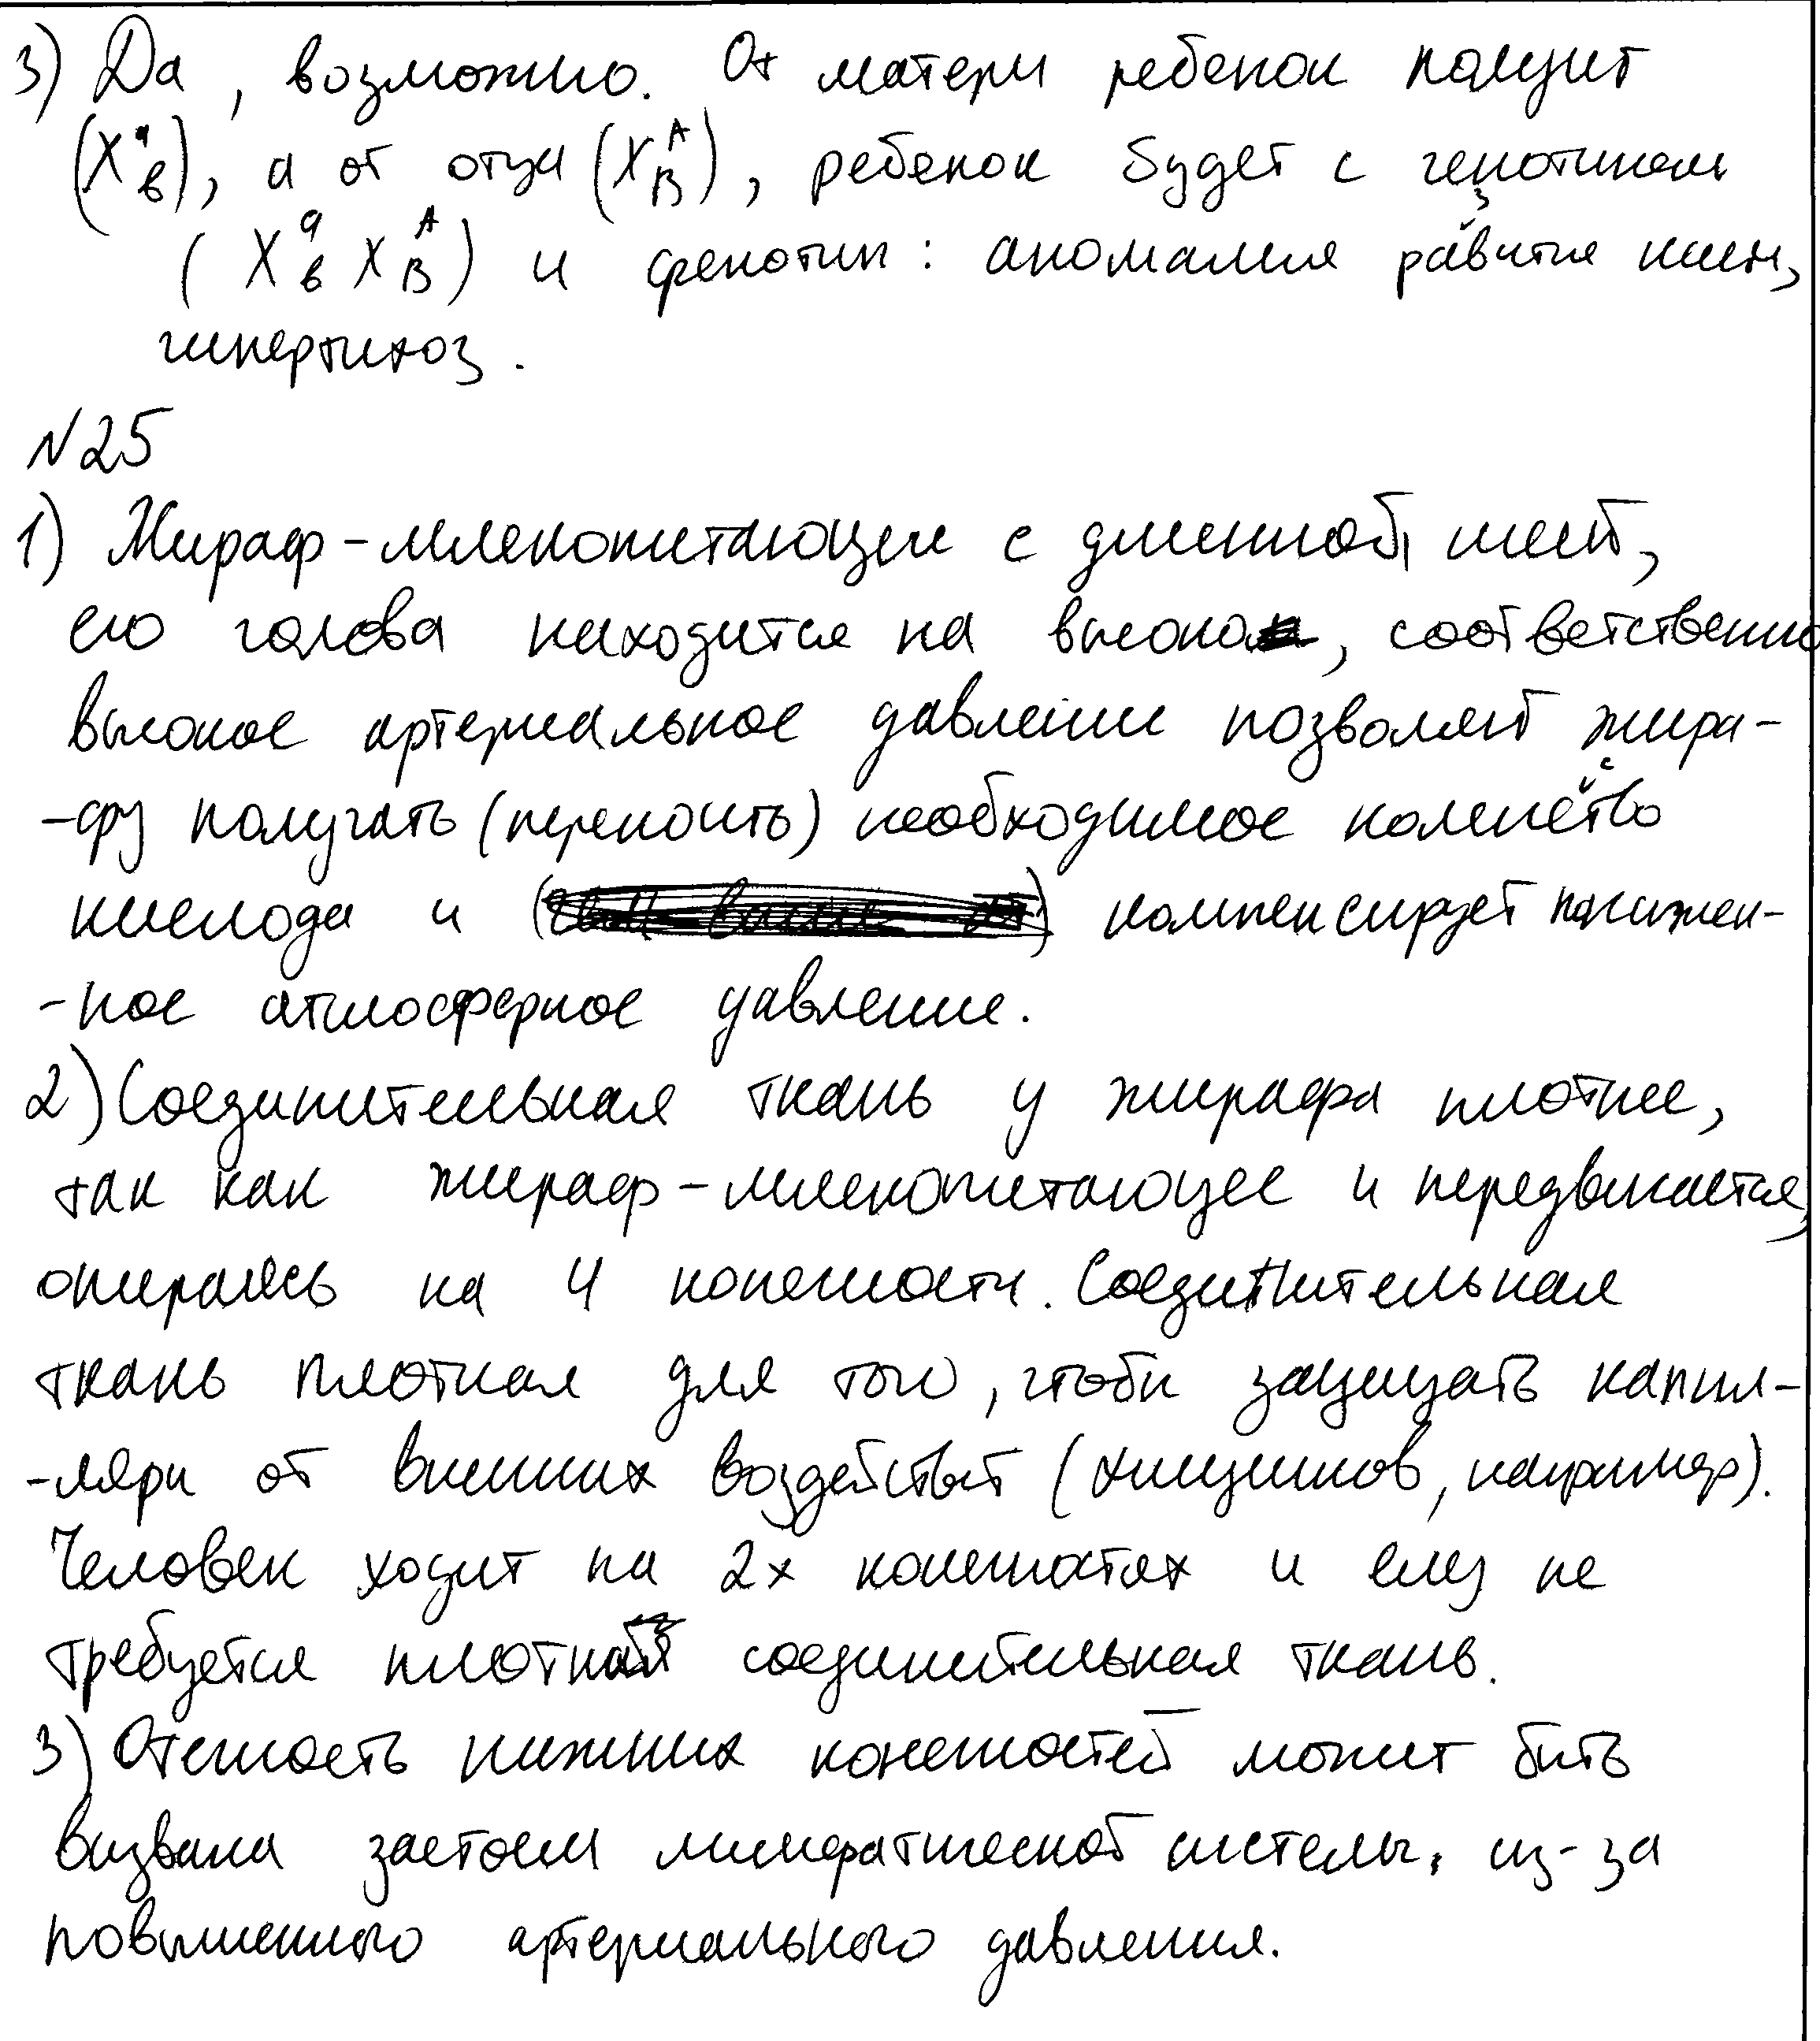 3) Да, возможно. От матери ребенок получит
(X^a_b), а от отца (X^A_B), ребенок будет с генотипом
(X^a_b X^A_B) и фенотип: аномалия развития кисти,
гипертихоз.
№25
1) Жираф - млекопитающее с длинной шеей,
его голова находится на высоко, соответственно
высокое артериальное давление позволяет жира-
-фу получать (переносить) необходимое количество
кислода и компенсирует понижен-
-ное атмосферное давление.
2) Соединительная ткань у жирафа плотнее,
так как жираф - млекопитающее и передвигается,
опираясь на 4 конечности. Соединительная
ткань плотная для того, чтобы защищать капил-
-ляры от внешних воздействий (хищников, например).
Человек ходит на 2х конечностях и ему не
требуется плотная соединительная ткань.
3) Отечность нижних конечностей может быть
вызвана застоем лимфатической системы, из-за
повышенного артериального давления.